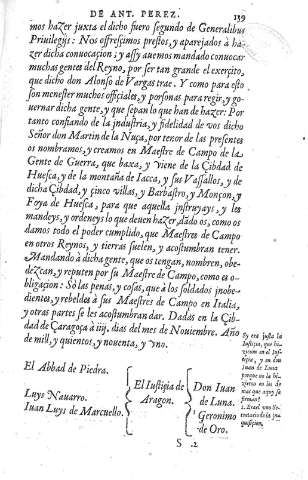 DE ANT. PEREZ. 139
mos hazer juxta el dicho fuero segundo de Generalibus
Priuilegijs: Nos offrescimos prestos, y aparejados à ha-
zer dicha conuocacion; y assy auemos mandado conuocar
muchas gentes del Reyno, por ser tan grande el exercito,
que dicho don Alonso de Vargas trae. Y como para esto
son menester muchos officiales, y personas para regir, y go-
uernar dicha gente, y que sepan lo que han de hazer: Por
tanto confiando de la industria, y fidelidad de vos dicho
Señor don Martin de la Nuça, por tenor de las presentes
os nombramos, y creamos en Maestre de Campo de la
Gente de Guerra, que baxa, y viene de la Cibdad de
Huesca, y de la montaña de Iacca, y sus Vassallos, y de
dicha Cibdad, y cinco villas, y Barbastro, y Monçon, y
Foya de Huesca, para que aquella instruyays, y les
mandeys, y ordeneys lo que deuen hazer, dado os, como os
damos todo el poder cumplido, que Maestres de Campo
en otros Reynos, y tierras suelen, y acostumbran tener.
Mandando à dicha gente, que os tengan, nombren, obe-
dezcan, y reputen por su Maestre de Campo, como es o-
bligacion: Sò las penas, y cosas, que à los soldados inobe-
dientes, y rebeldes à sus Maestres de Campo en Italia,
y otras partes se les acostumbran dar. Dadas en la Cib-
dad de Çaragoça à iiij. dias del mes de Nouiembre. Año
de mill, y quientos, y nouenta, y vno.
Sy era justa la
Iusticia, que hi-
zieron en el Ius-
ticia, y en don
Iuan de Luna
porque no la hi-
zieron en los de
mas que aqui se
firman?
El Abbad de Piedra.
Luys Nauarro.
Iuan Luys de Marcuello.
El Iustigia de
Aragon.
Don Iuan
de Luna.
Geronimo
de Oro.
S .2